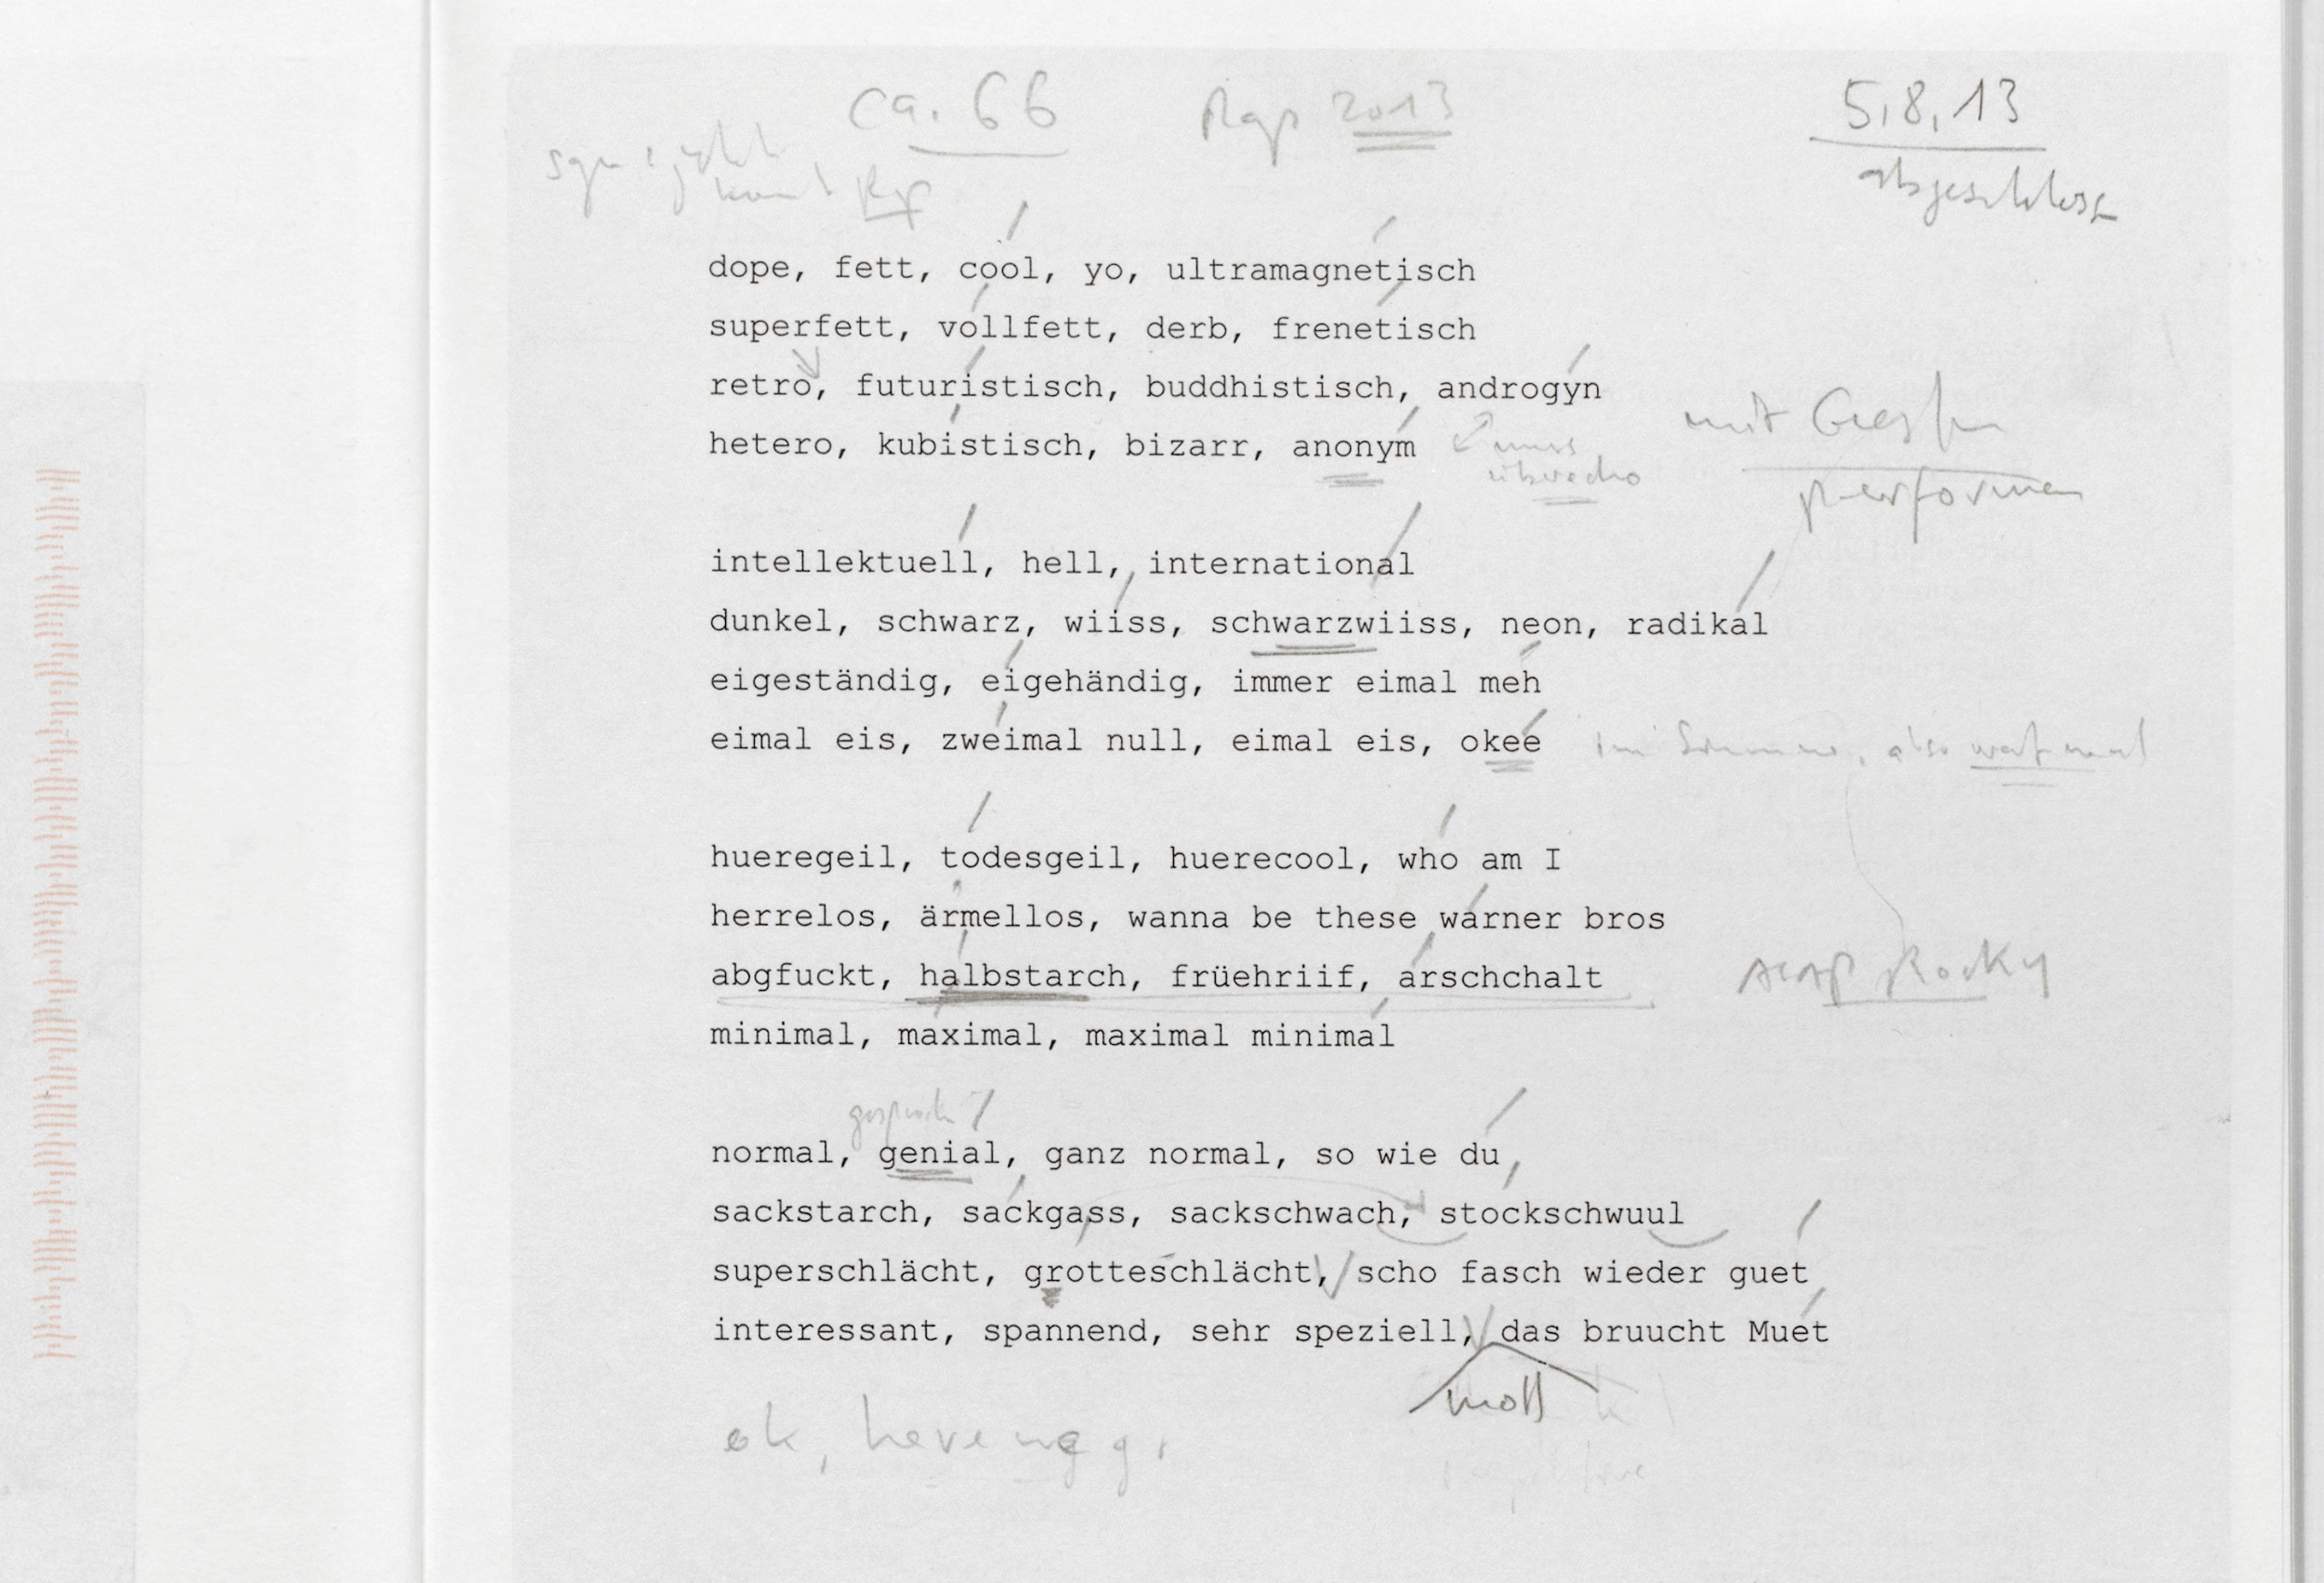 ca. 66
Rap 2013
5.8.13
Rap
dope, fett, cool, yo, ultramagnetisch
superfett, vollfett, derb, frenetisch
retro, futuristisch, buddhistisch, androgyn
hetero, kubistisch, bizarr, anonym
muss
mit
performen
intellektuell, hell, international
dunkel, schwarz, wiiss, schwarzwiiss, neon, radikal
eigeständig, eigehändig, immer eimal meh
eimal eis, zweimal null, eimal eis, okee
im also
hueregeil, todesgeil, huerecool, who am I
herrelos, ärmellos, wanna be these warner bros
abgfuckt, halbstarch, früehriif, arschchalt
asap Rocky
minimal, maximal, maximal minimal
normal, genial, ganz normal, so wie du
sackstarch, sackgass, sackschwach, stockschwuul
superschlächt, grotteschlächt, scho fasch wieder guet
interessant, spannend, sehr speziell, das bruucht Muet
moll
ok,